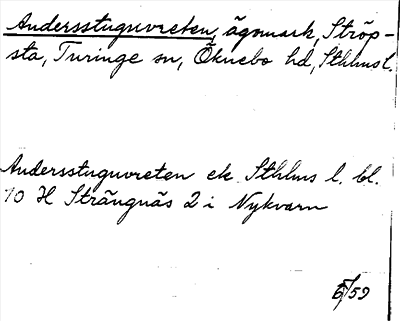 Andersstuguvreten, ägomark, Ströp-
sta, Turinge sn, Öknebo hd, Sthlms l.
Andersstuguvreten ek. Sthlms l. bl.
10 H Strängnäs 2 i Nykvarn
6/59